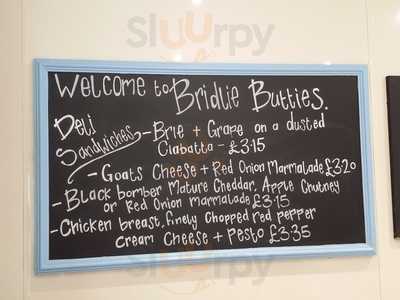 SlUUrpy
Welcome to Bridlie Butties.
Deli
Sandwiches
- Brie + Grape on a dusted
Ciabatta - £3.15
- Goats Cheese + Red Onion Marmalade £3.20
- Black bomber Mature Cheddar, Apple Chutney
or Red Onion marmalade £3.15
- Chicken breast, finely chopped red pepper
cream Cheese + Pesto £3.35